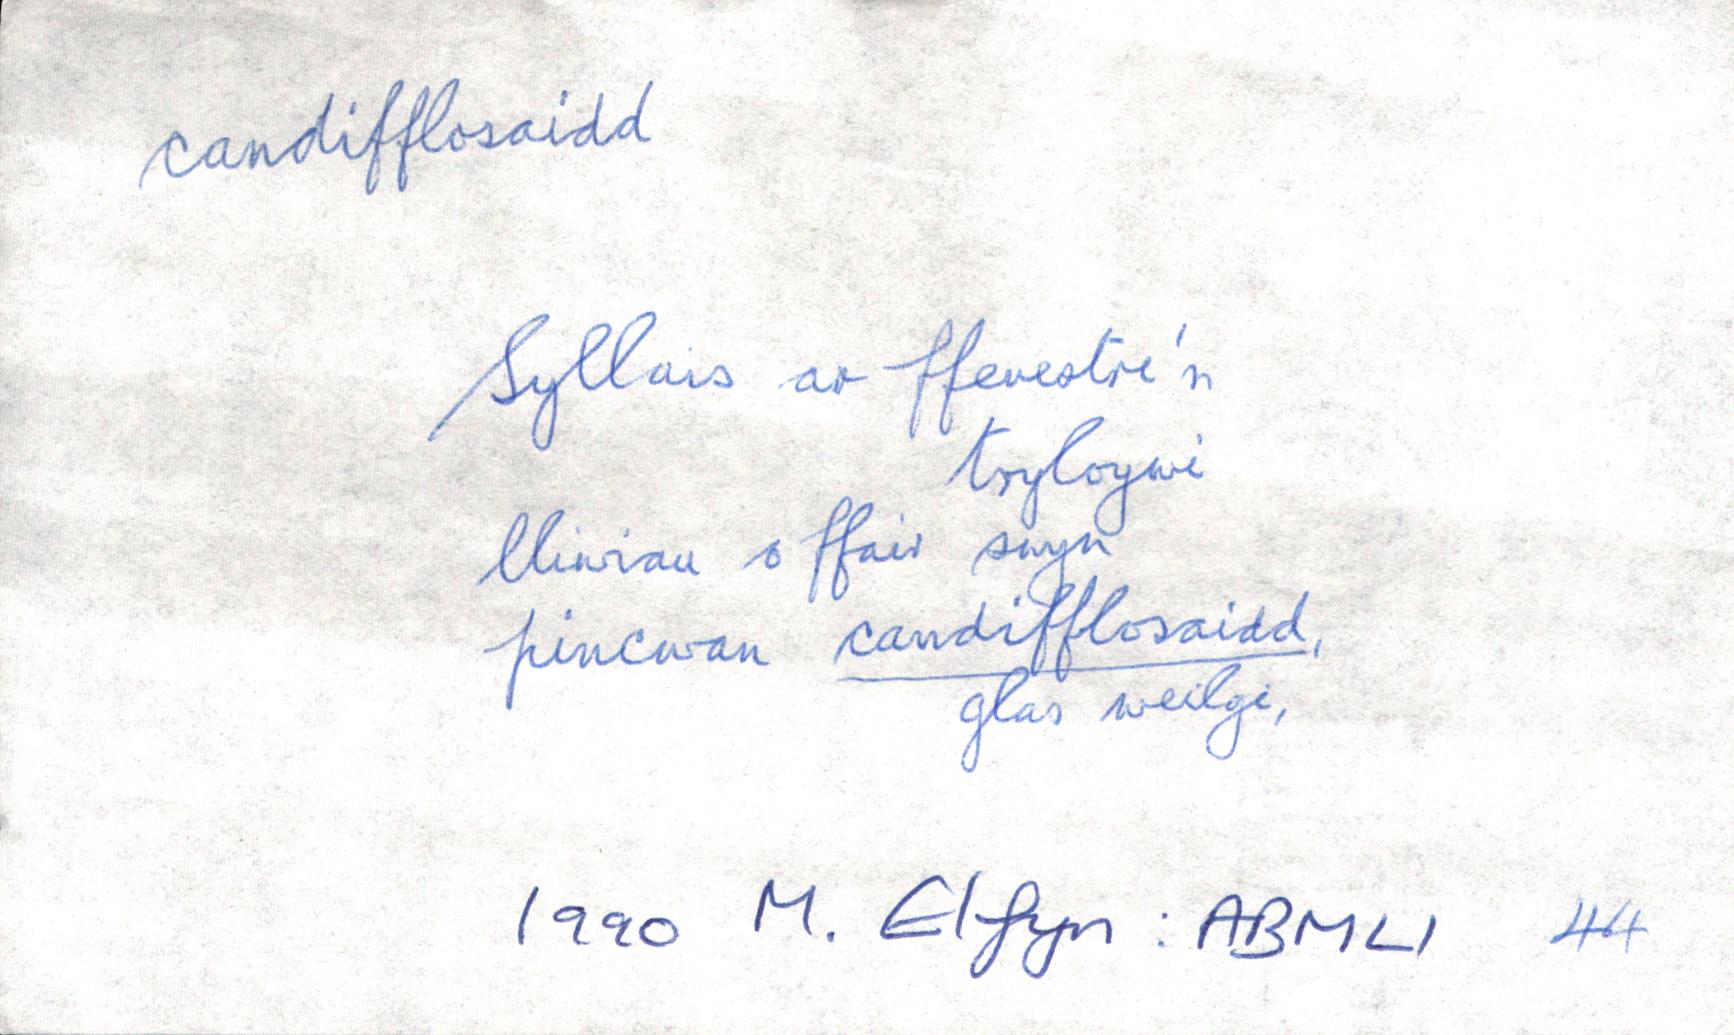 candifflosaidd
Syllais ar ffenestri'n
tryloywi
lliwiau o ffair swyn
pincwan candifflosaidd,
glas weilgi,
1990 M. Elfyn : ABMLl 44